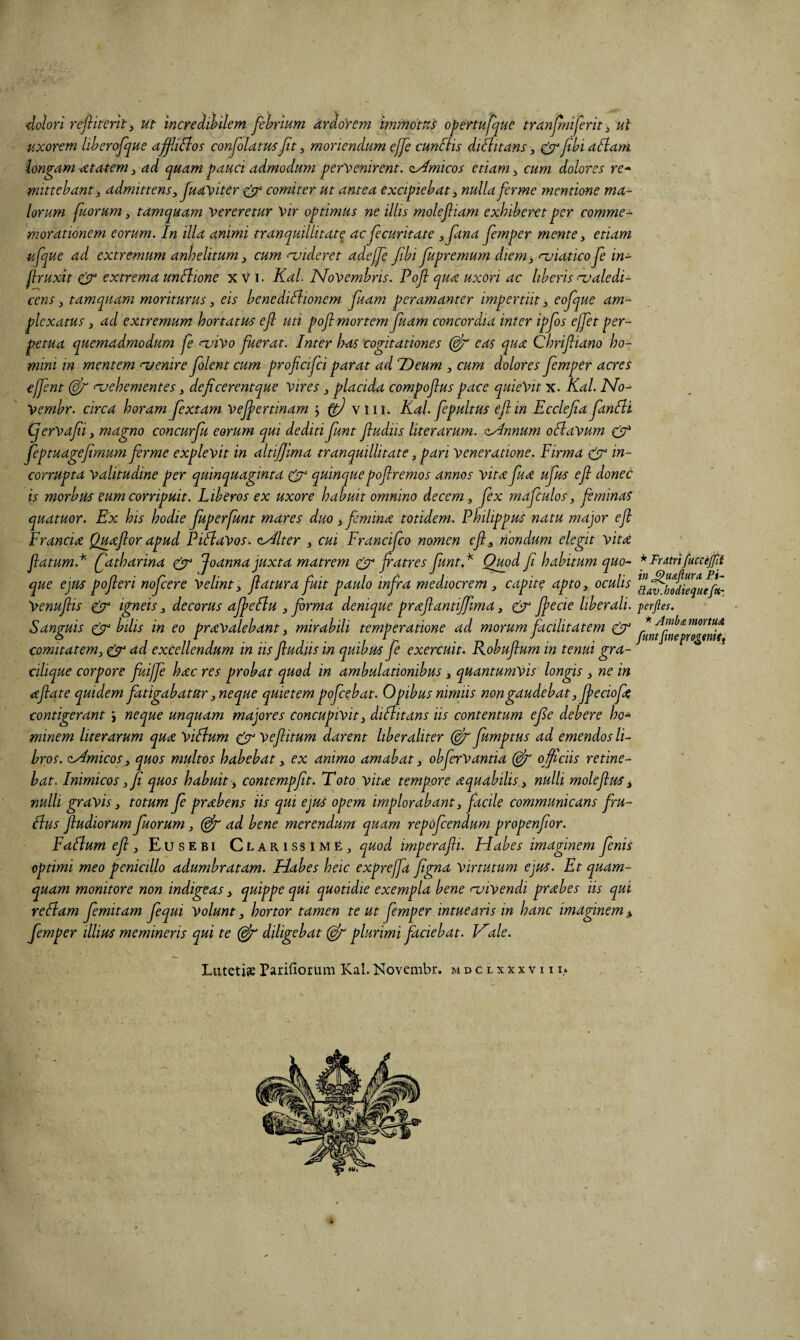 dolori restiterit, ut incredibilem febrium ardorem immotus opertusque transmiserit, ut
uxorem liberosque afflictos consolatus sit, moriendum esse cunctis dictitans, & sibi actam
longam ætatem, ad quam pauci admodum pervenirent. Amicos etiam, cum dolores re-
mittebant, admittens, suaviter & comiter ut antea excipiebat, nulla ferme mentione ma-
lorum suorum, tamquam vereretur vir optimus ne illis molestiam exhiberet per comme-
morationem eorum. In illa animi tranquillitate ac securitate, sana semper mente, etiam
usque ad extremum anhelitum, cum videret adesse sibi supremum diem, viatico se in-
struxit & extrema unctione XVI. Kal. Novembris. Post quæ uxori ac liberis valedi-
cens, tamquam moriturus, eis benedictionem suam peramanter impertiit, eosque am-
plexatus, ad extremum hortatus est uti post mortem suam concordia inter ipsos esset per-
petua quemadmodum se vivo fuerat. Inter has cogitationes & eas quæ Christiano ho-
mini in mentem venire solent cum proficisci parat ad Deum, cum dolores semper acres
essent & vehementes, deficerentque vires, placida compostus pace quievit X. Kal. No-
vembr. circa horam sextam vespertinam; & VIII. Kal. sepultus est in Ecclesia sancti
Gervasii, magno concursu eorum qui dediti sunt studiis literarum. Annum octavum &
septuagesimum ferme explevit in altissima tranquillitate, pari veneratione. Firma & in-
corrupta valitudine per quinquaginta & quinque postremos annos vitæ suæ usus est donec
is morbus eum corripuit. Liberos ex uxore habuit omnino decem, sex masculos, feminas
quatuor. Ex his hodie supersunt mares duo, feminæ totidem. Philippus natu major est
Franciæ Quæstor apud Pictavos. Alter, cui Francisco nomen est, nondum elegit vitæ
statum.* Catharina & Joanna juxta matrem & fratres sunt.* Quod si habitum quo-
que ejus posteri noscere velint, statura fuit paulo infra mediocrem, capite apto, oculis
venustis & igneis, decorus aspectu, forma denique præstantissima, & specie liberali.
Sanguis & bilis in eo prævalebant, mirabili temperatione ad morum facilitatem &
comitatem, & ad excellendum in iis studiis in quibus se exercuit. Robustum in tenui gra-
cilique corpore fuisse hæc res probat quod in ambulationibus, quantumvis longis, ne in
æstate quidem fatigabatur, neque quietem poscebat. Opibus nimiis non gaudebat, speciosæ
contigerant; neque unquam majores concupivit, dictitans iis contentum esse debere ho-
minem literarum quæ victum & vestitum darent liberaliter & sumptus ad emendos li-
bros. Amicos, quos multos habebat, ex animo amabat, observantia & officiis retine-
bat. Inimicos, si quos habuit, contempsit. Toto vitæ tempore æquabilis, nulli molestus,
nulli gravis, totum se præbens iis qui ejus opem implorabant, facile communicans fru-
ctus studiorum suorum, & ad bene merendum quam reposcendum propensior.
Factum est, EUSEBI CLARISSIME, quod imperasti. Habes imaginem senis
optimi meo penicillo adumbratam. Habes heic expressa signa virtutum ejus. Et quam-
quam monitore non indigeas, quippe qui quotidie exempla bene vivendi præbes iis qui
rectam semitam sequi volunt, hortor tamen te ut semper intuearis in hanc imaginem,
semper illius memineris qui te & diligebat & plurimi faciebat. Vale.
Lutetiæ Parisiorum Kal. Novembr. MDCLXXXVIII.
* Fratri successit
in Quæstura Pi-
ctav. hodieque su-
perstes.
* Ambæ mortuæ
sunt sine progenie.